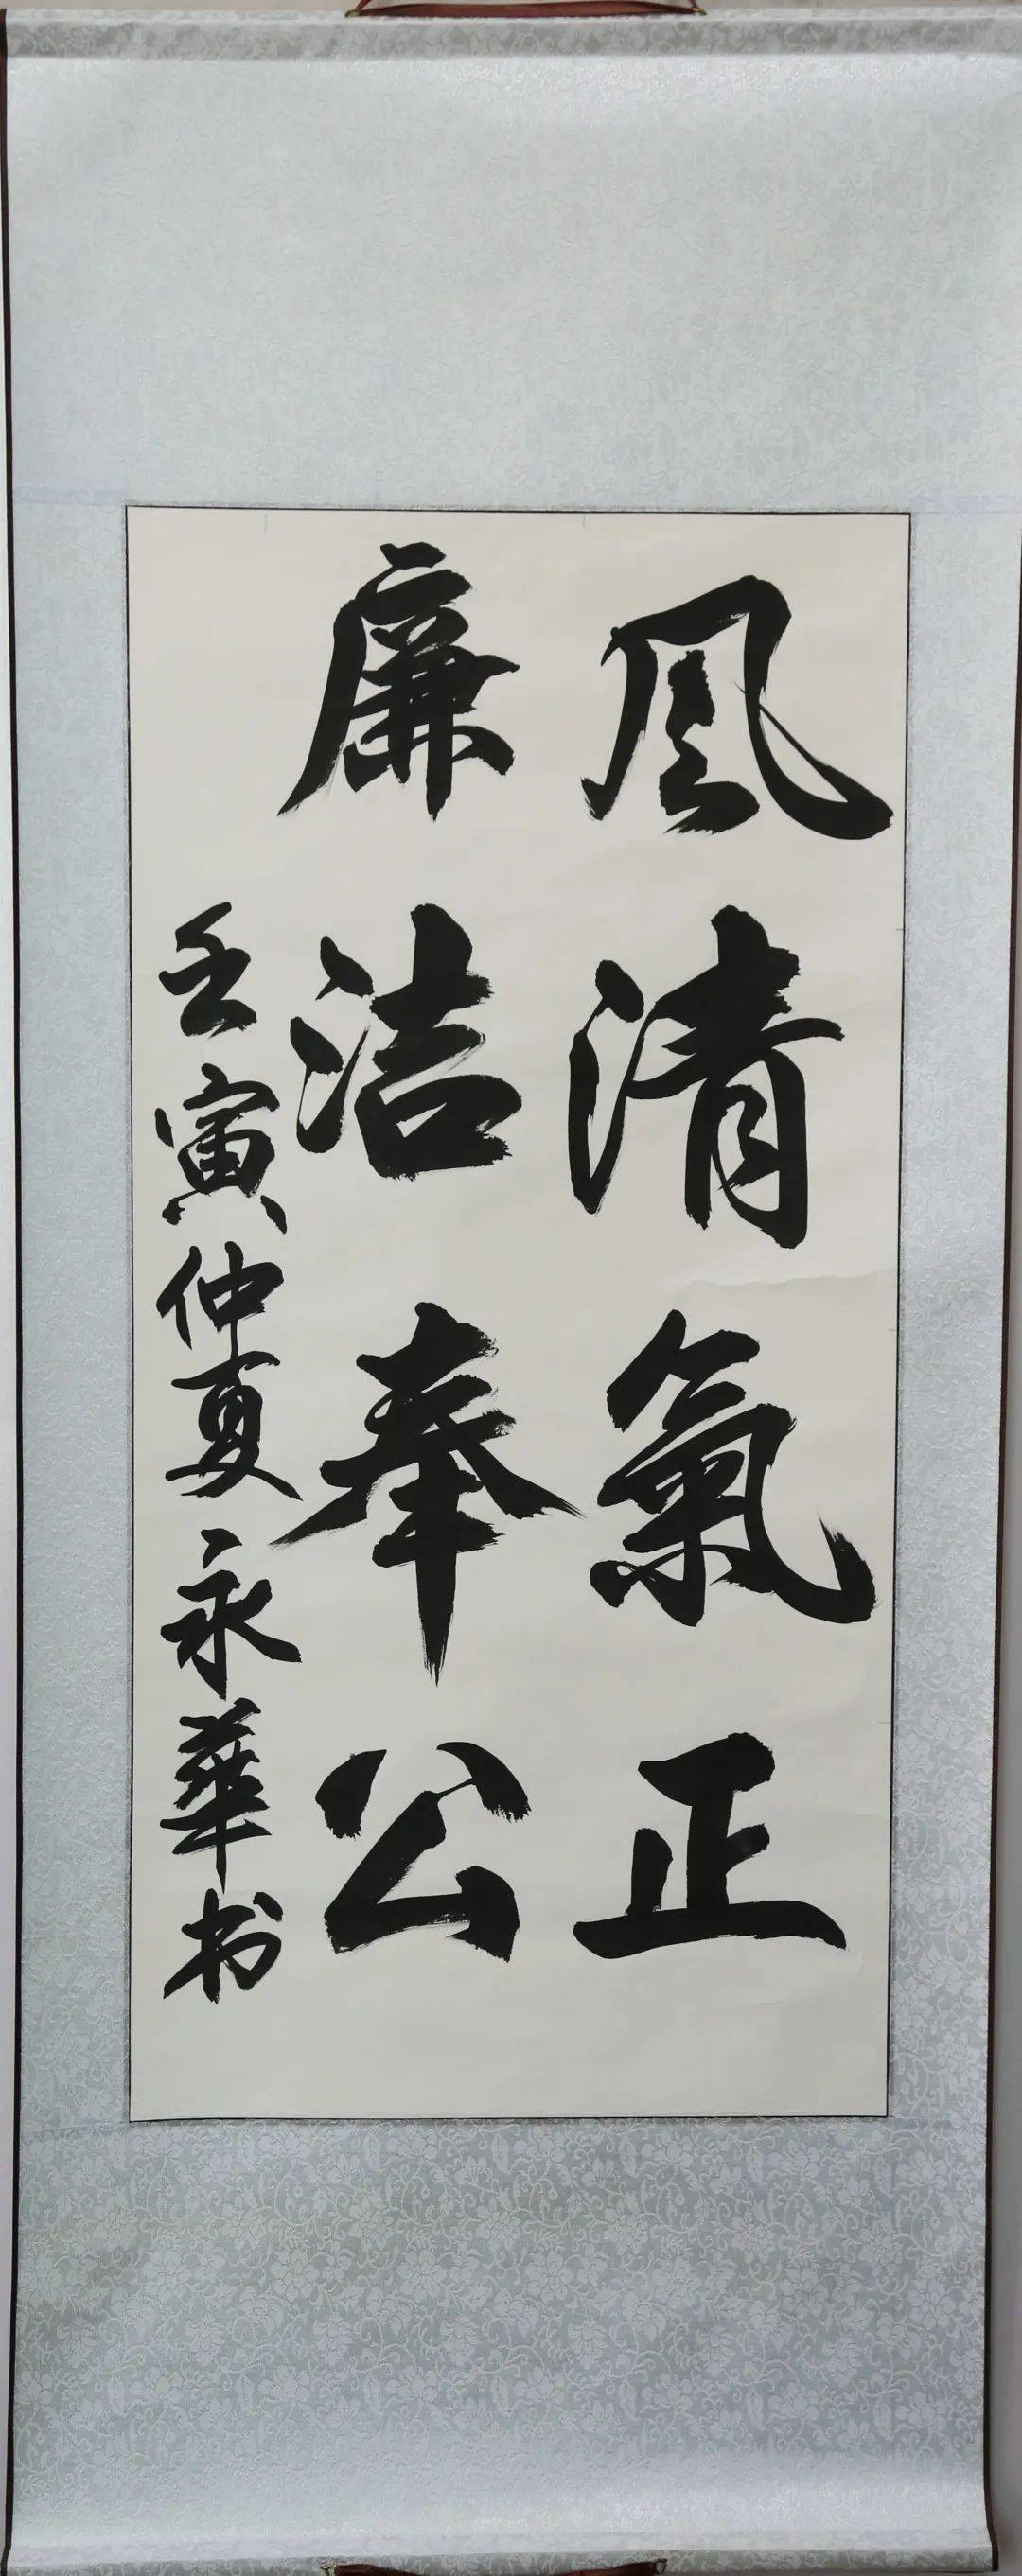 风清氣正
廉洁奉公
壬寅仲夏永華书